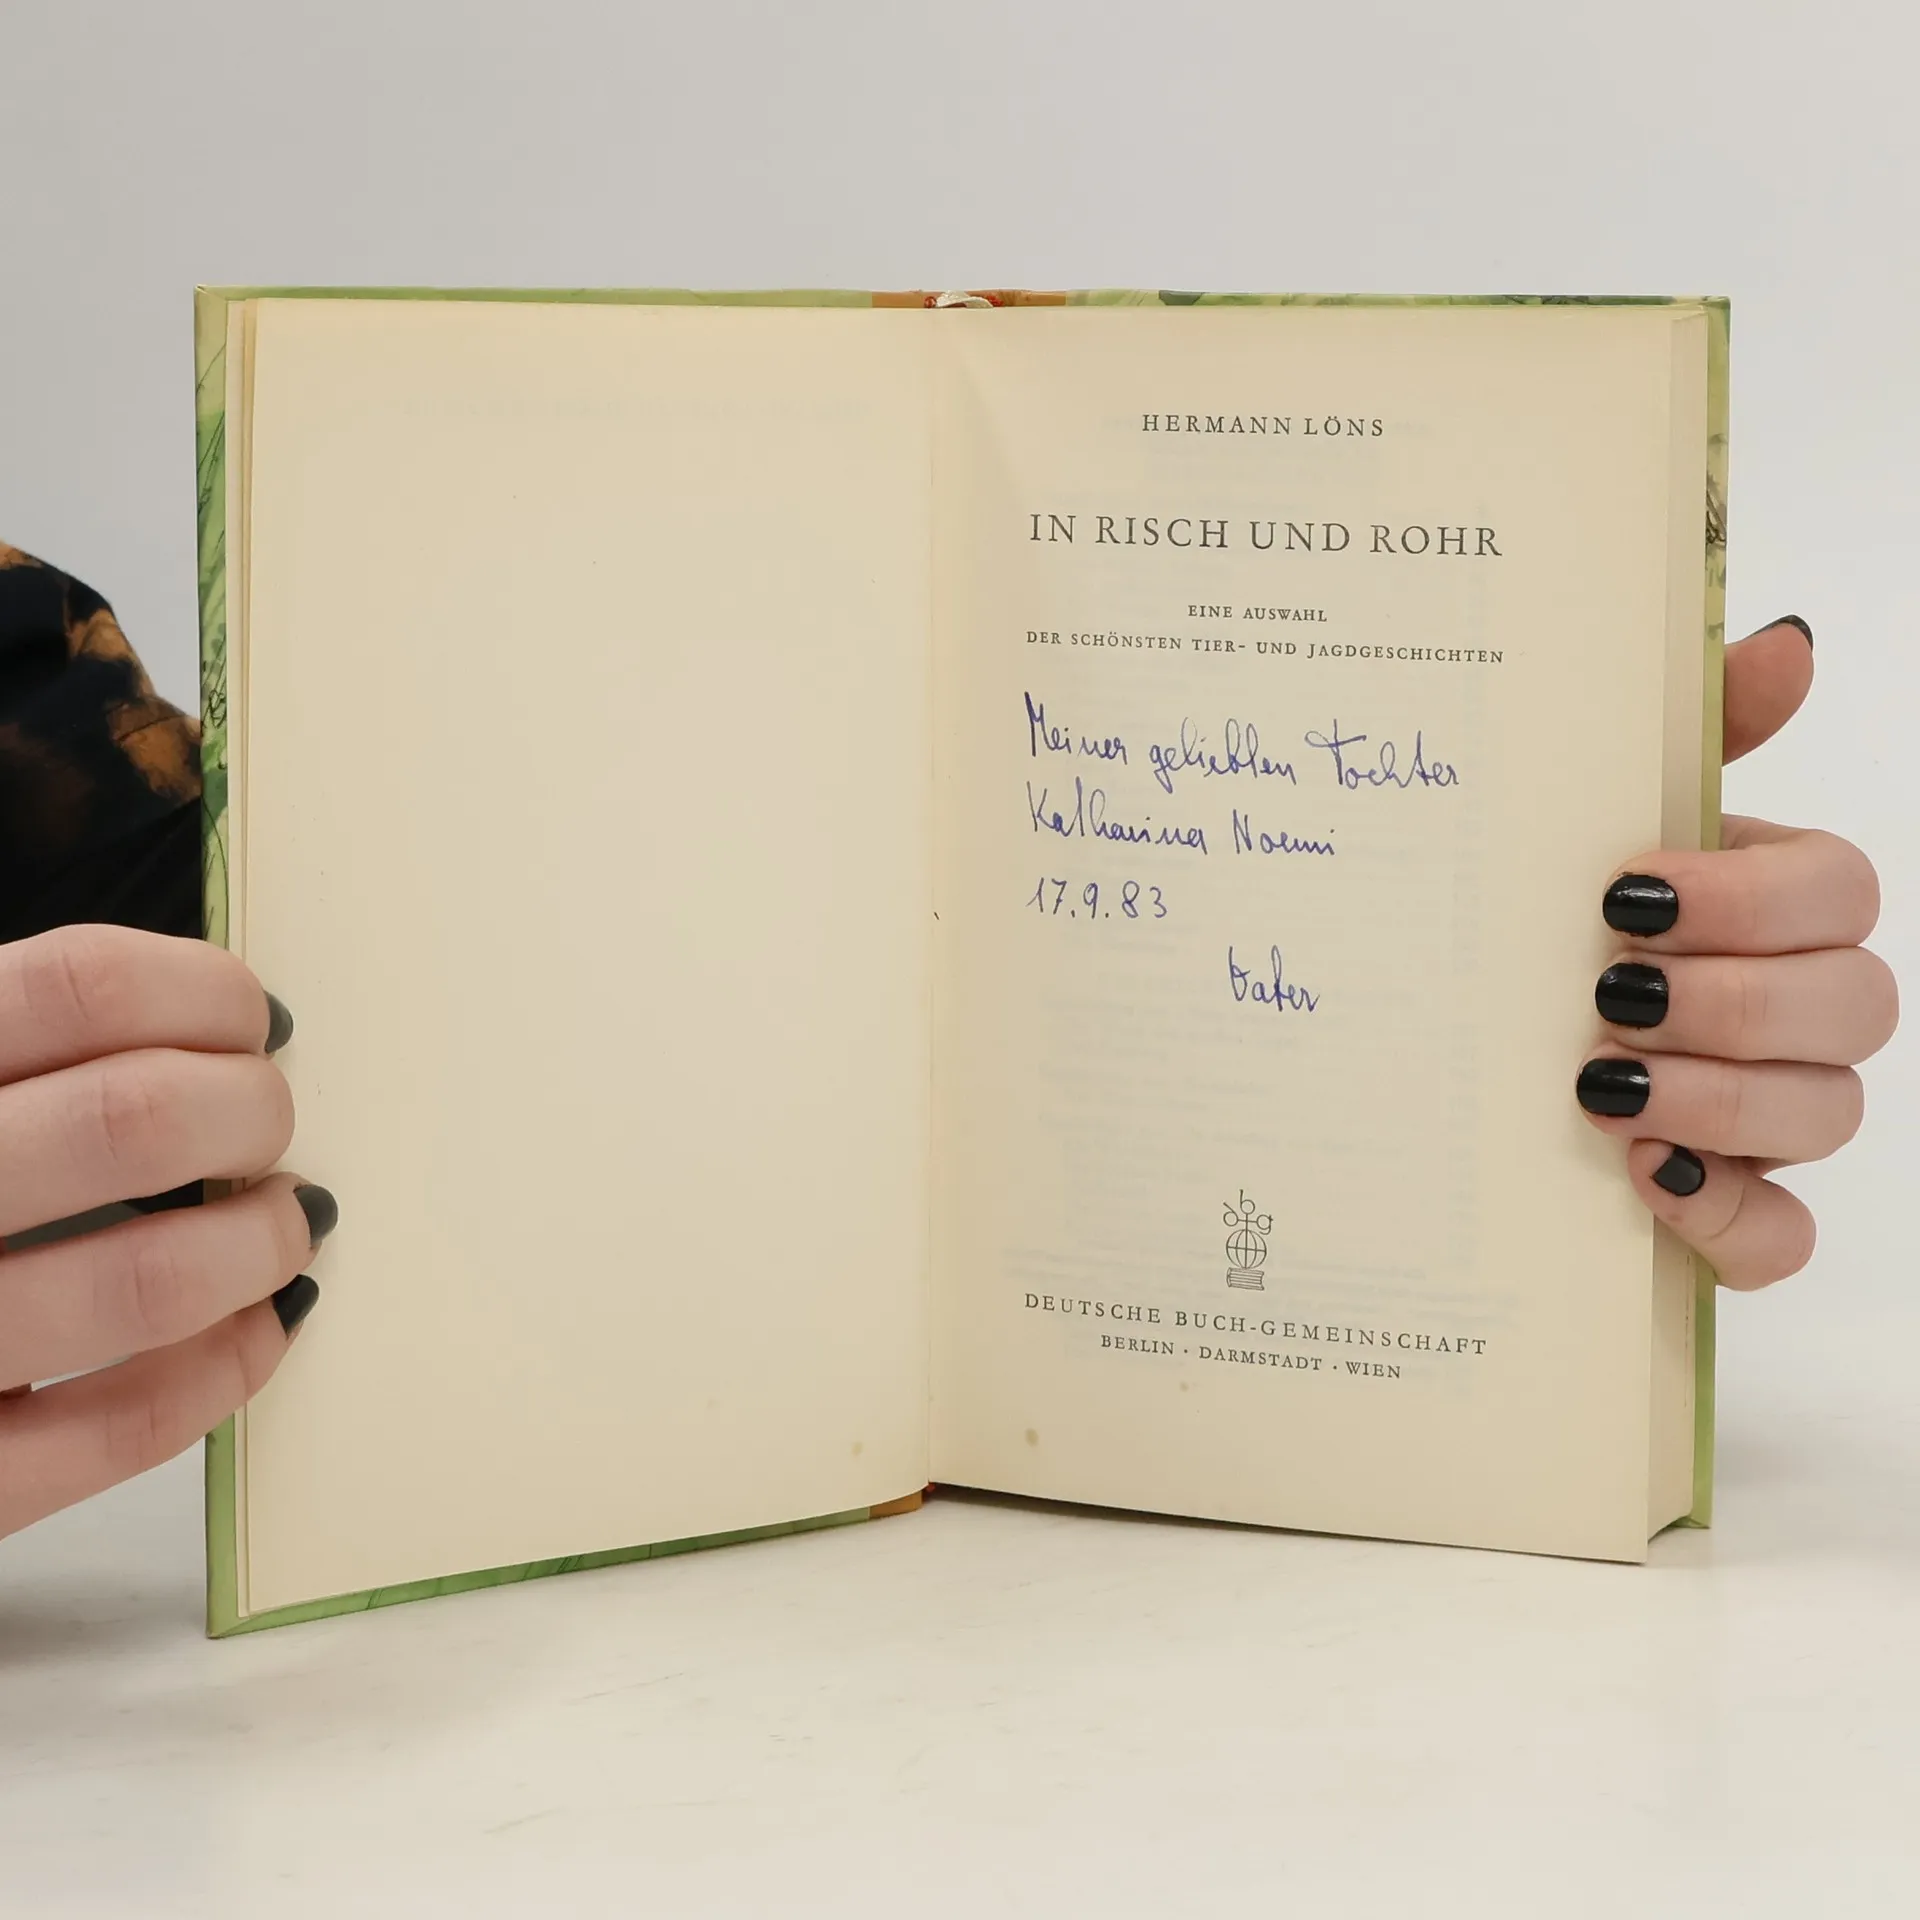 HERMANN LÖNS
IN RISCH UND ROHR
EINE AUSWAHL
DER SCHÖNSTEN TIER- UND JAGDGESCHICHTEN
Meiner geliebten Tochter
Katharina Noemi
17.9.83
Vater
dbg
DEUTSCHE BUCH-GEMEINSCHAFT
BERLIN · DARMSTADT · WIEN